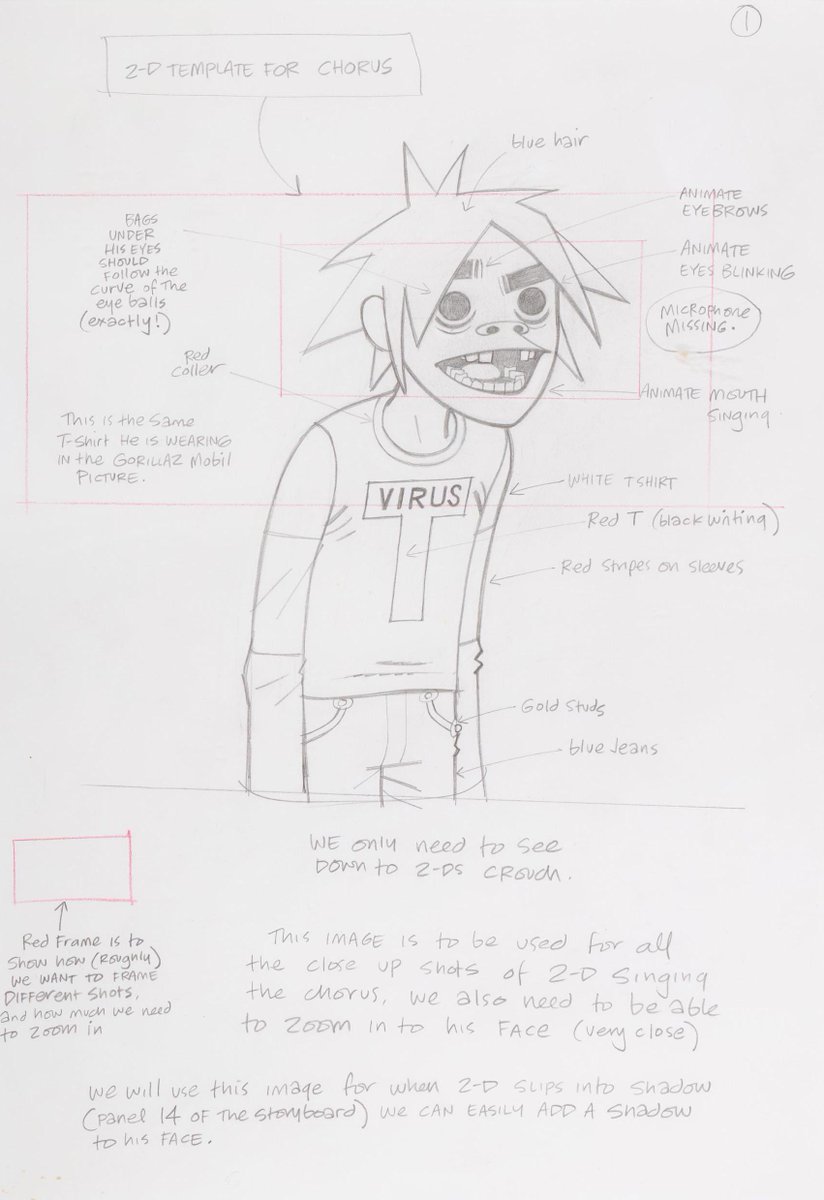 1
2-D TEMPLATE FOR CHORUS
blue hair
ANIMATE
EYEBROWS
BAGS
UNDER
HIS EYES
SHOULD
Follow the
curve of The
eye balls
(exactly!)
ANIMATE
EYES BLINKING
MICROPHONE
MISSING.
Red
Coller
ANIMATE MOUTH
Singing
This is the Same
T-Shirt He is WEARING
IN the GORILLAZ Mobil
PICTURE.
WHITE TSHIRT
VIRUS
Red T (black writing)
Red Stripes on Sleeves
Gold Studs
blue Jeans
WE only need to See
DOWN to 2-DS CROUCH.
Red Frame is to
Show how (Roughly)
WE WANT TO FRAME
DIFFERENT SHOTS,
and how much we need
to ZOOM in
THIS IMAGE is to be used for all
the close up shots of 2-D Singing
the chorus, we also need to be able
to ZOOM in to his FACE (very close)
WE will use this image for when 2-D SLIPS into Shadow
(panel 14 OF The Storyboard) WE CAN EASILY ADD A Shadow
to his FACE.